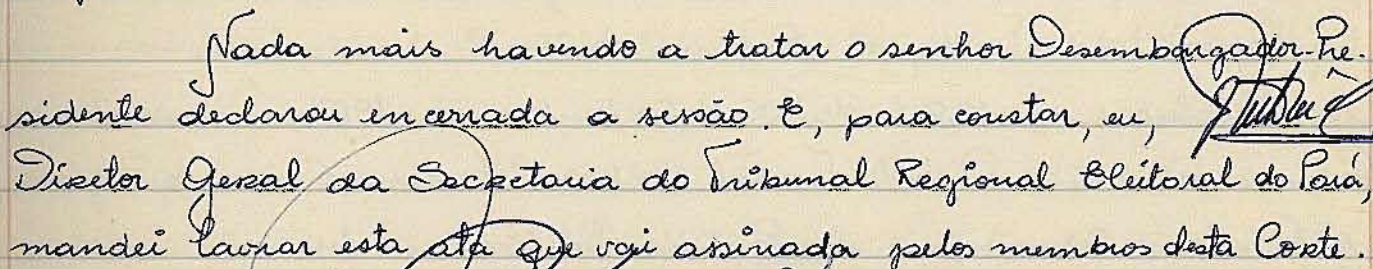 Nada mais havendo a tratar o senhor Desembargador-Pre-
sidente declarou encerrada a sessão. E, para constar, eu,
Diretor Geral da Secretaria do Tribunal Regional Eleitoral do Pará,
mandei lavrar esta ata que vai assinada pelos membros desta Corte.